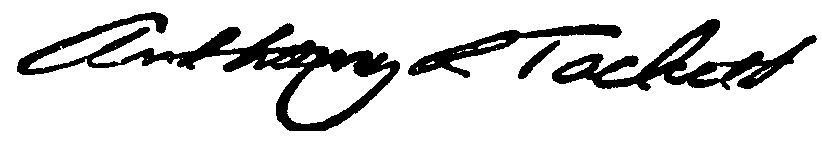 Anthony R Tackett